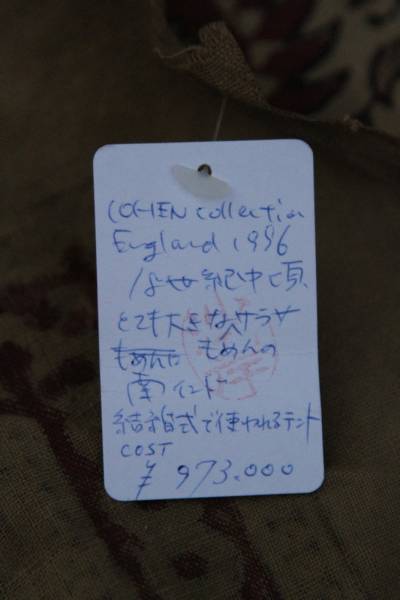 COHEN collection
England 1996
18世紀中頃
とても大きなサラサ
もめんに もめんの
南インド
結婚式で使われるテント
COST
¥ 973.000